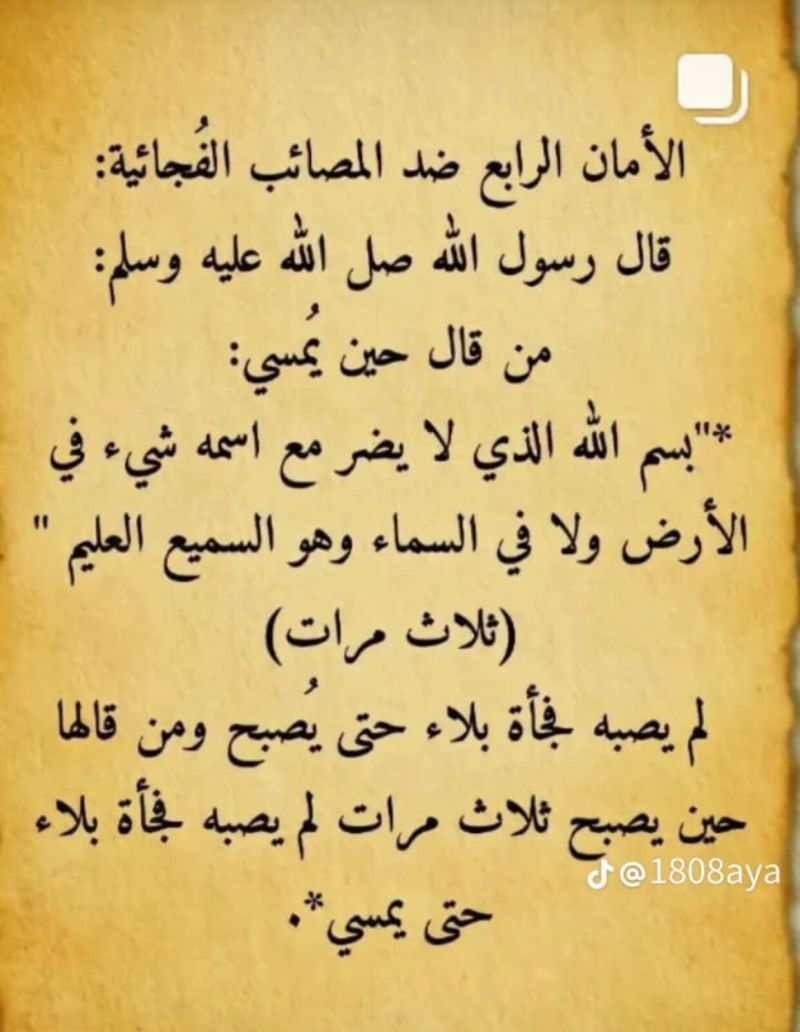 الأمان الرابع ضد المصائب الفُجائية:
قال رسول الله صل الله عليه وسلم:
من قال حين يُمسي:
*"بسم الله الذي لا يضر مع اسمه شيء في
الأرض ولا في السماء وهو السميع العليم "
(ثلاث مرات)
لم يصبه فجأة بلاء حتى يُصبح ومن قالها
حين يصبح ثلاث مرات لم يصبه فجأة بلاء
@1808aya
حتى يمسي*.